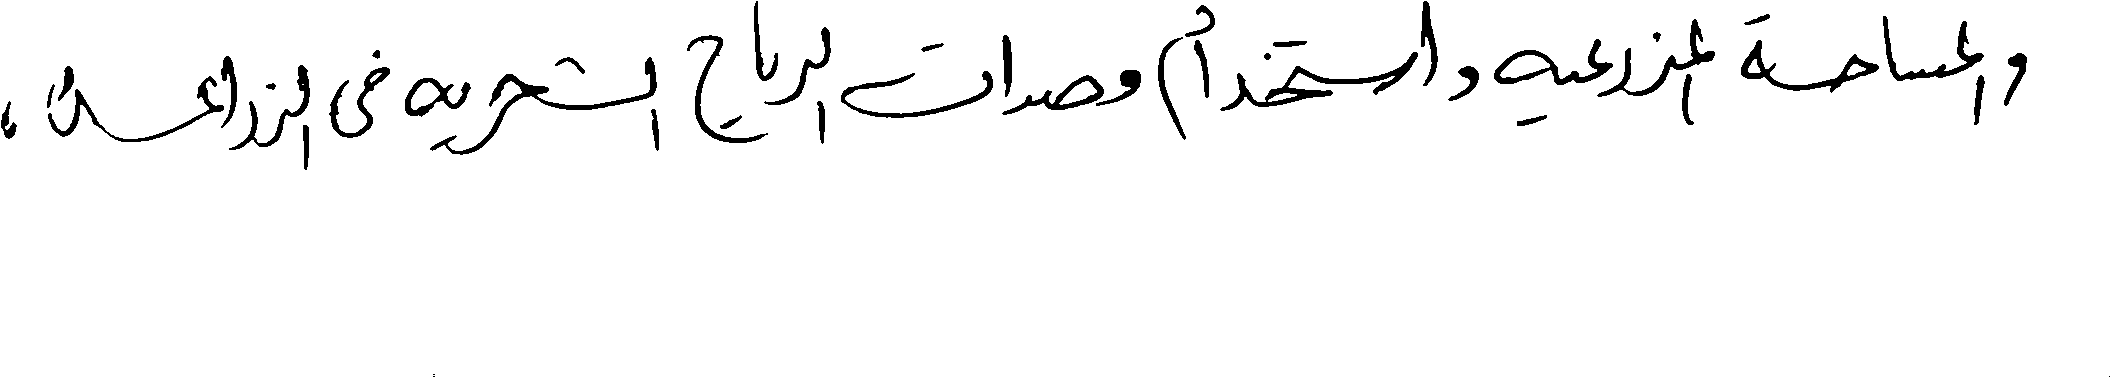 والمساحة المزرعيه واستخدام وصدات الرياح الشجريه في الزراعة،